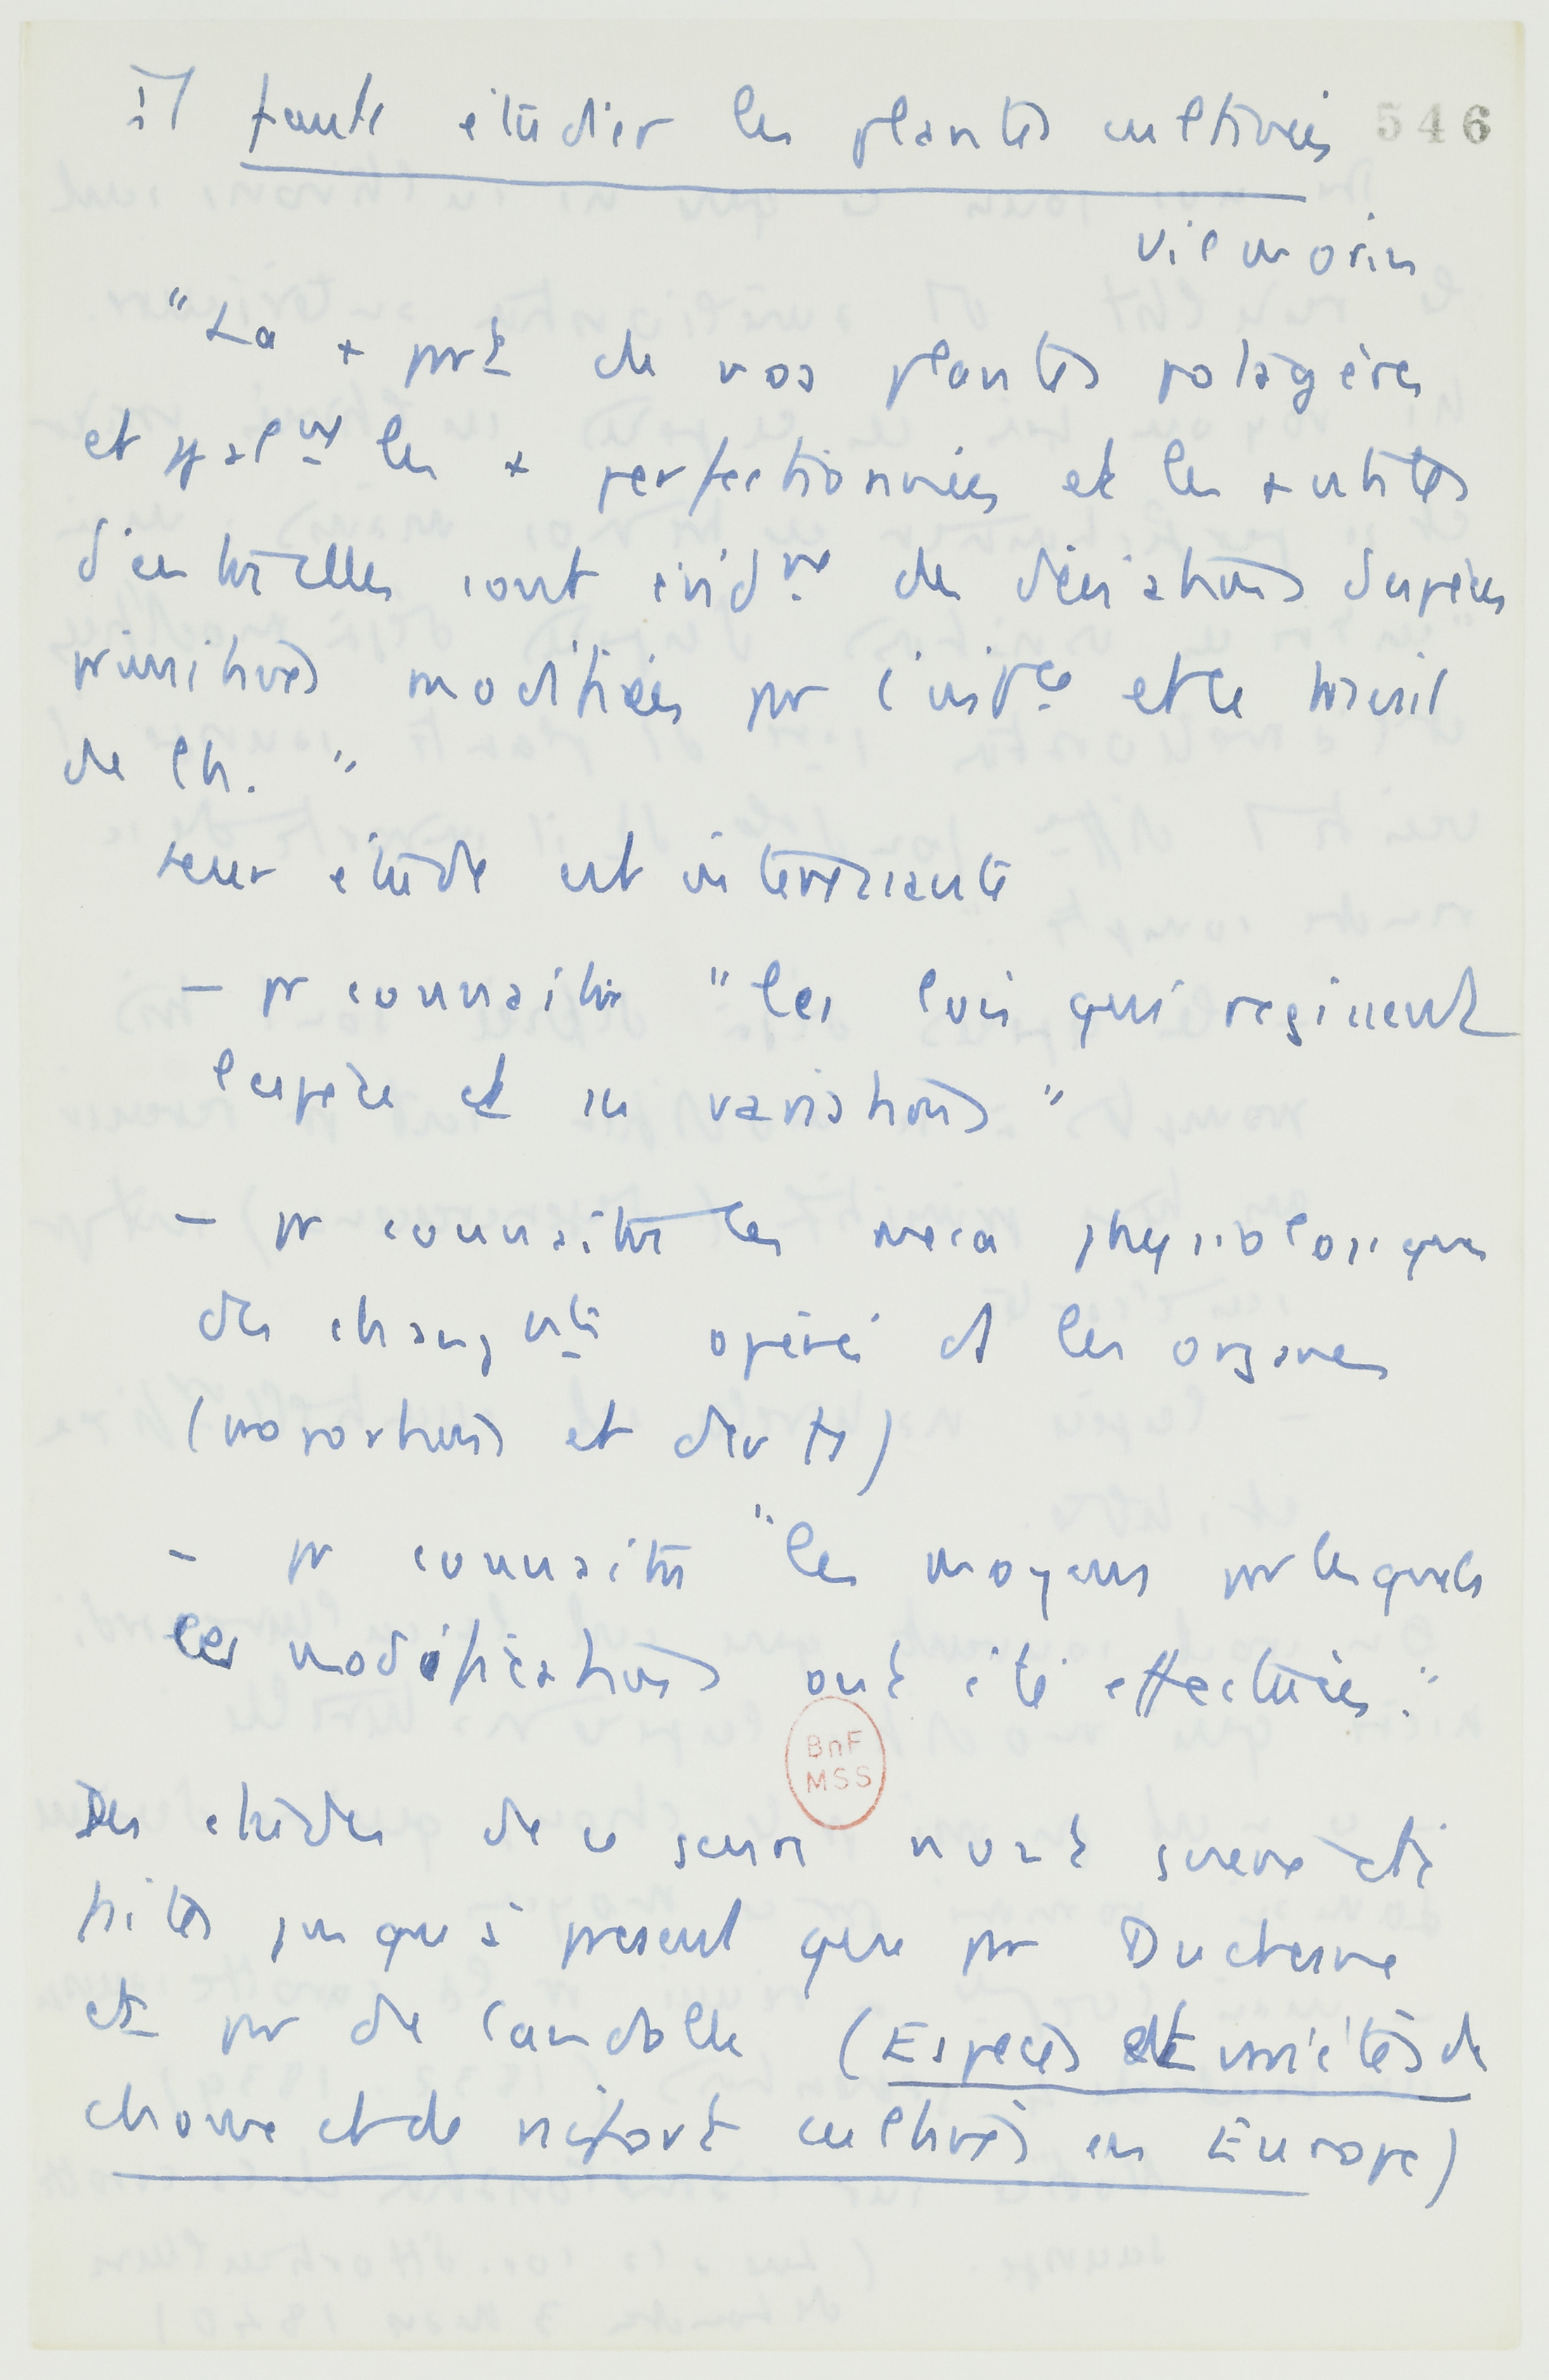 il faut étudier les plantes cultivées 546
Vilmorin
"La + prt de nos plantes potagères
et ppalmt les + perfectionnées et les + utiles
d'entre elles sont évidmt des déviations d'espèces
primitives modifiées par l'infce et le travail
de l'h. "
Leur étude est intéressante
– pr connaître "les lois qui régissent
l'espèce et ses variations"
– pr connaître les méca physiologiques
des changmts opérés ds les organes
(proportions et divts)
– pr connaître "les moyens par lesquels
les modifications ont été effectuées."
BnF
MSS
Des études de ce genre n'ont guère été
faites jusqu'à présent que par Duchesne
et par de Candolle (Espèces et variétés de
choux et de raifort cultivés en Europe)